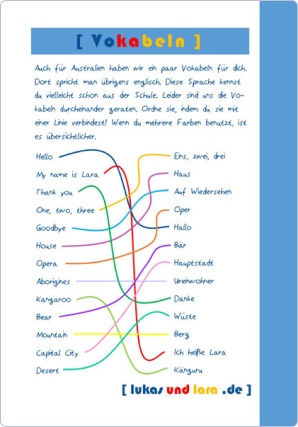 [ Vokabeln ]
Auch für Australien haben wir ein paar Vokabeln für dich.
Dort spricht man übrigens englisch. Diese Sprache kennst
du vielleicht schon aus der Schule. Leider sind uns die Vo-
kabeln durcheinander geraten. Ordne sie, indem du sie mit
einer Linie verbindest! Wenn du mehrere Farben benutzt, ist
es übersichtlicher.
Hello Eins, zwei, drei
My name is Lara Haus
Thank you Auf Wiedersehen
One, two, three Oper
Goodbye Hallo
House Bär
Opera Hauptstadt
Aborigines Ureinwohner
Kangaroo Danke
Bear Wüste
Mountain Berg
Capital City Ich heiße Lara
Desert Känguru
[ lukas und lara .de ]